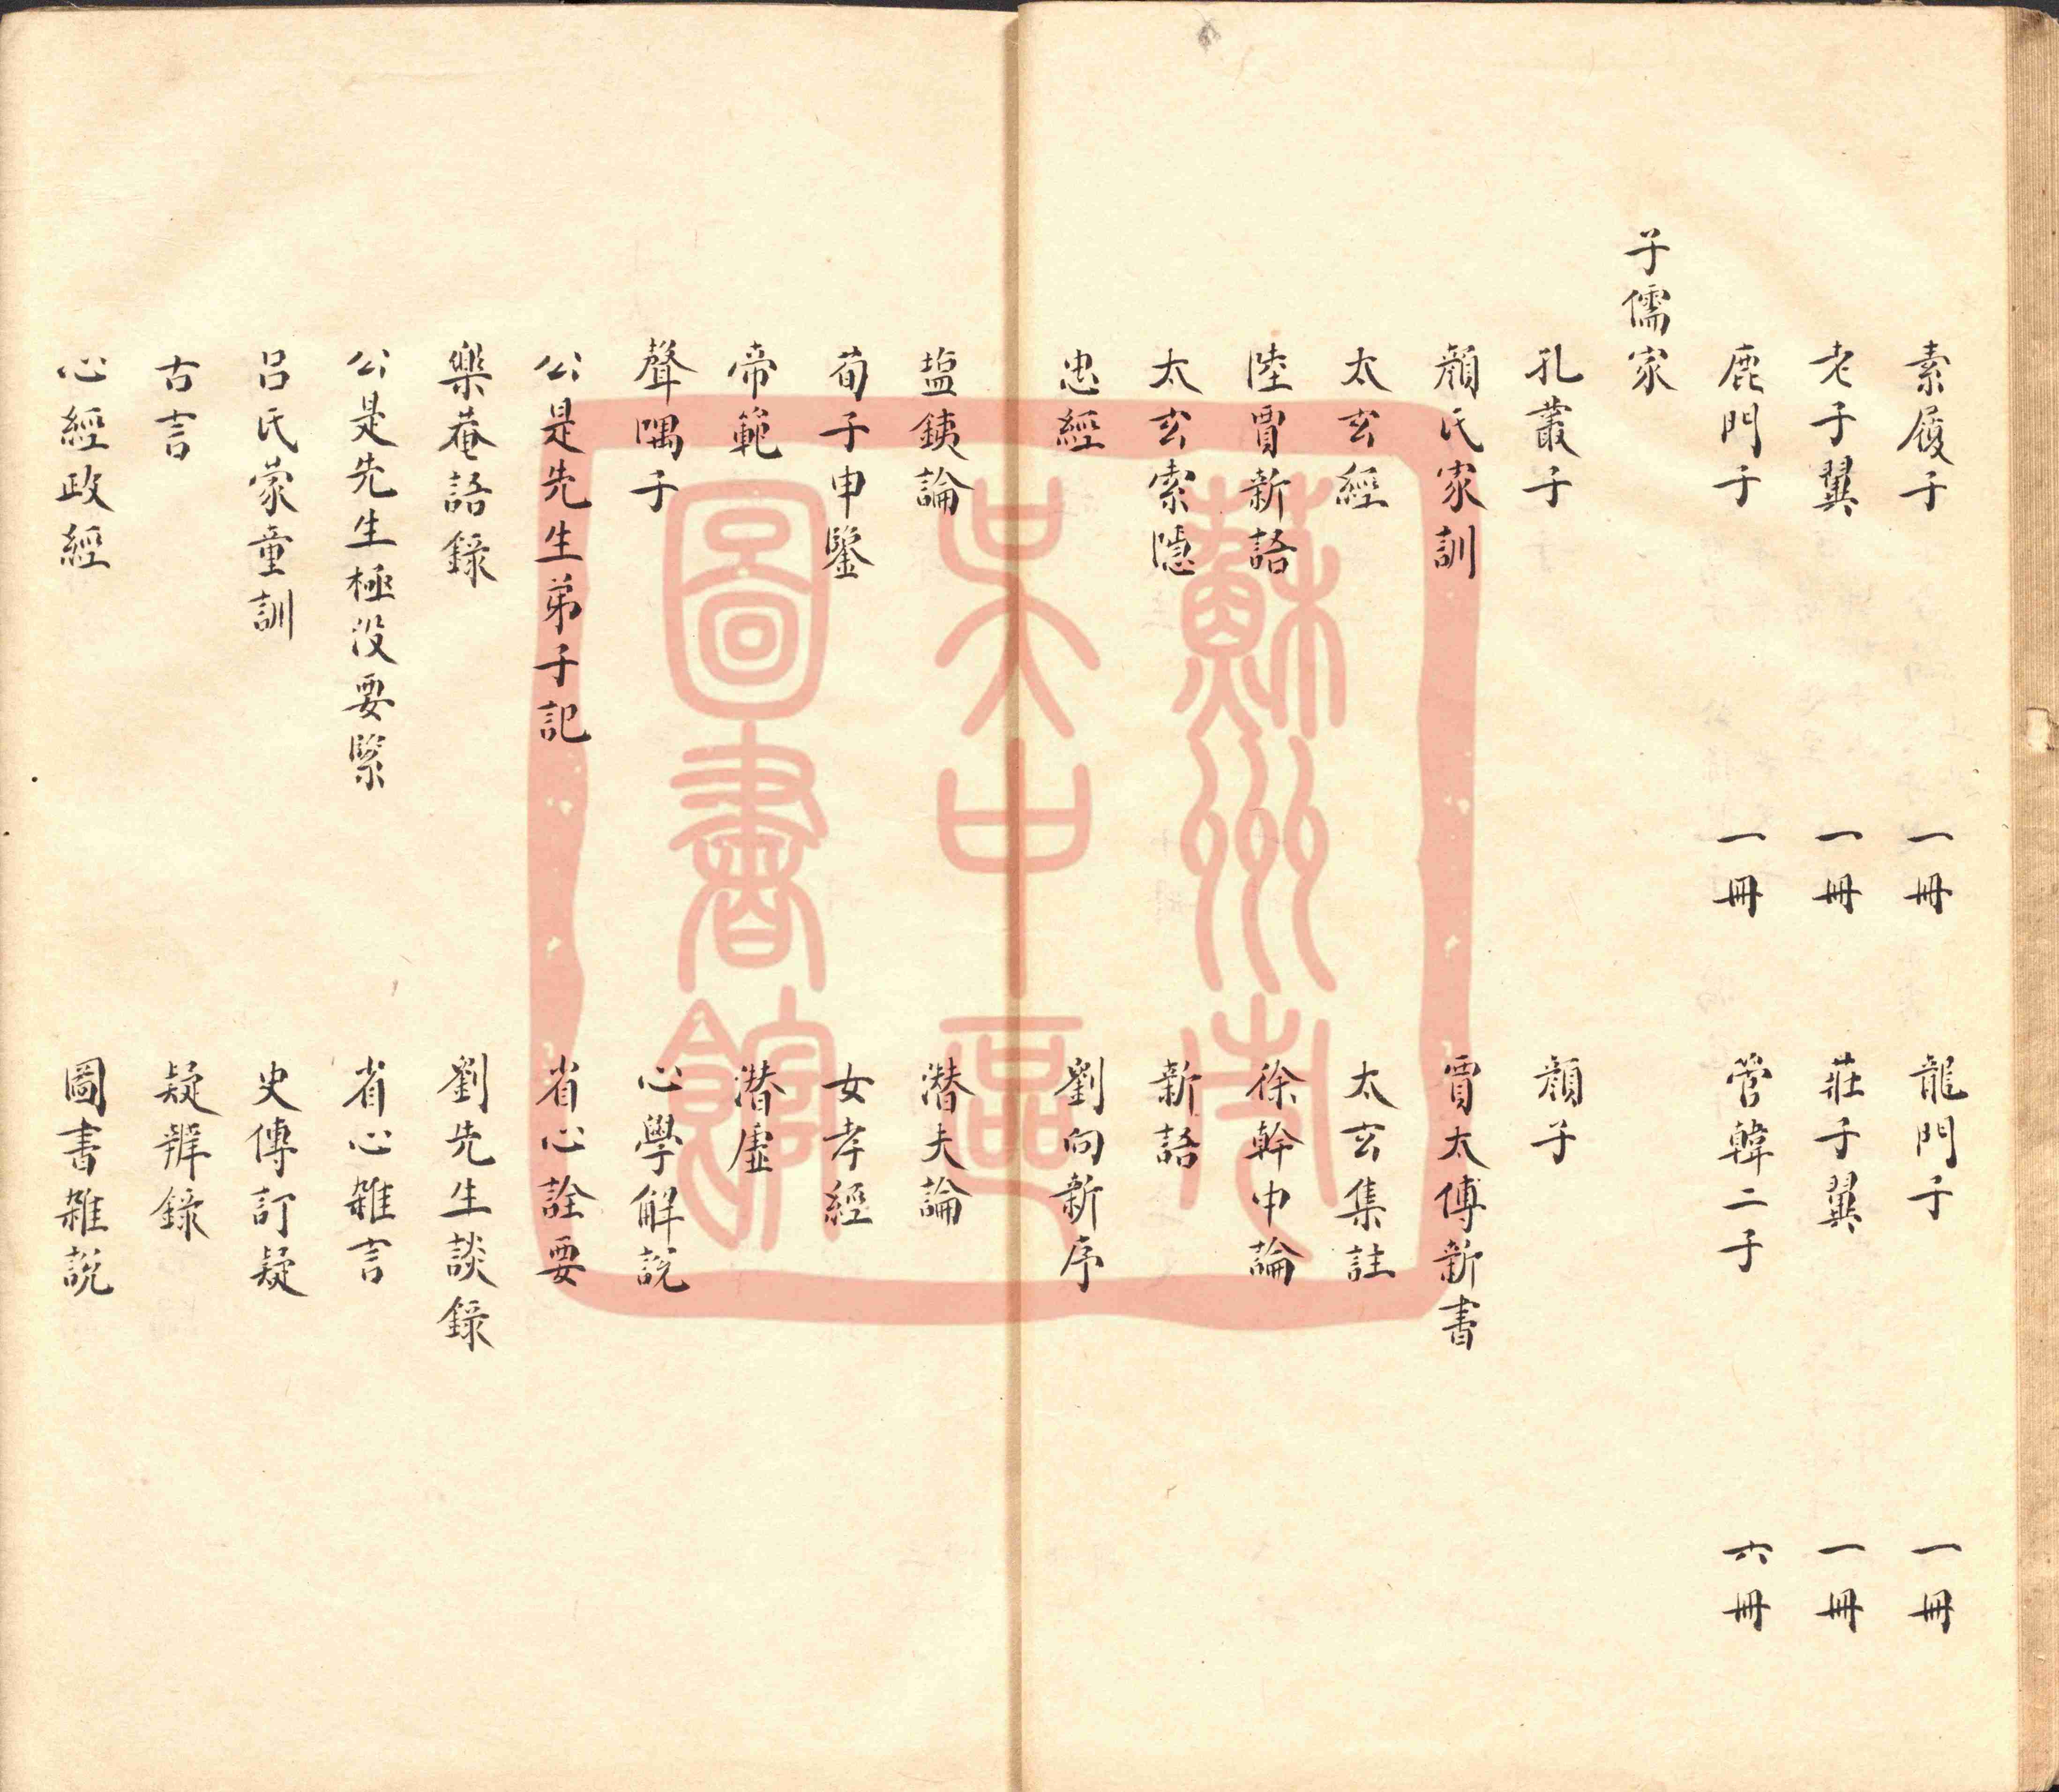 素履子 一冊 龍門子 一冊
老子翼 一冊 莊子翼 一冊
鹿門子 一冊 管韓二子 六冊
子儒家
孔叢子 顔子
顔氏家訓 賈太傅新書
太玄經 太玄集註
陸賈新語 徐幹中論
太玄索隱 新語
忠經 劉向新序
塩鐵論 潜夫論
荀子申鑒 女孝經
帝範 潜虛
聲隅子 心學解説
公是先生弟子記 省心詮要
樂菴語錄 劉先生談錄
公是先生極没要緊 省心雜言
呂氏蒙童訓 史傳訂疑
古言 疑辨錄
心經政經 圖書雜説
蘇州市
吴中區
圖書館